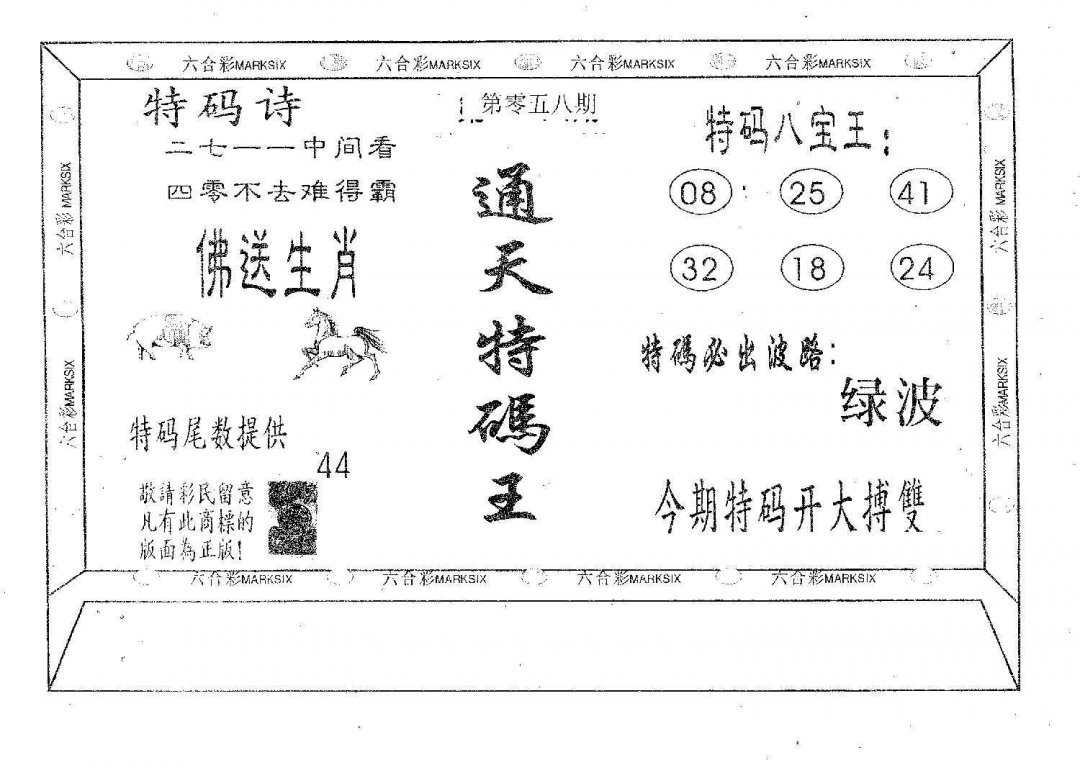 六合彩MARKSIX 六合彩MARKSIX 六合彩MARKSIX 六合彩MARKSIX
特码诗
二七一一中间看
四零不去难得霸
佛送生肖
特码尾数提供
44
敬請彩民留意
凡有此商標的
版面為正版!
第零五八期
通天特碼王
特码八宝王:
08 25 41
32 18 24
特碼必出波路:
绿波
今期特码开大搏雙
六合彩MARKSIX
六合彩MARKSIX
六合彩MARKSIX
六合彩MARKSIX
六合彩MARKSIX 六合彩MARKSIX 六合彩MARKSIX 六合彩MARKSIX